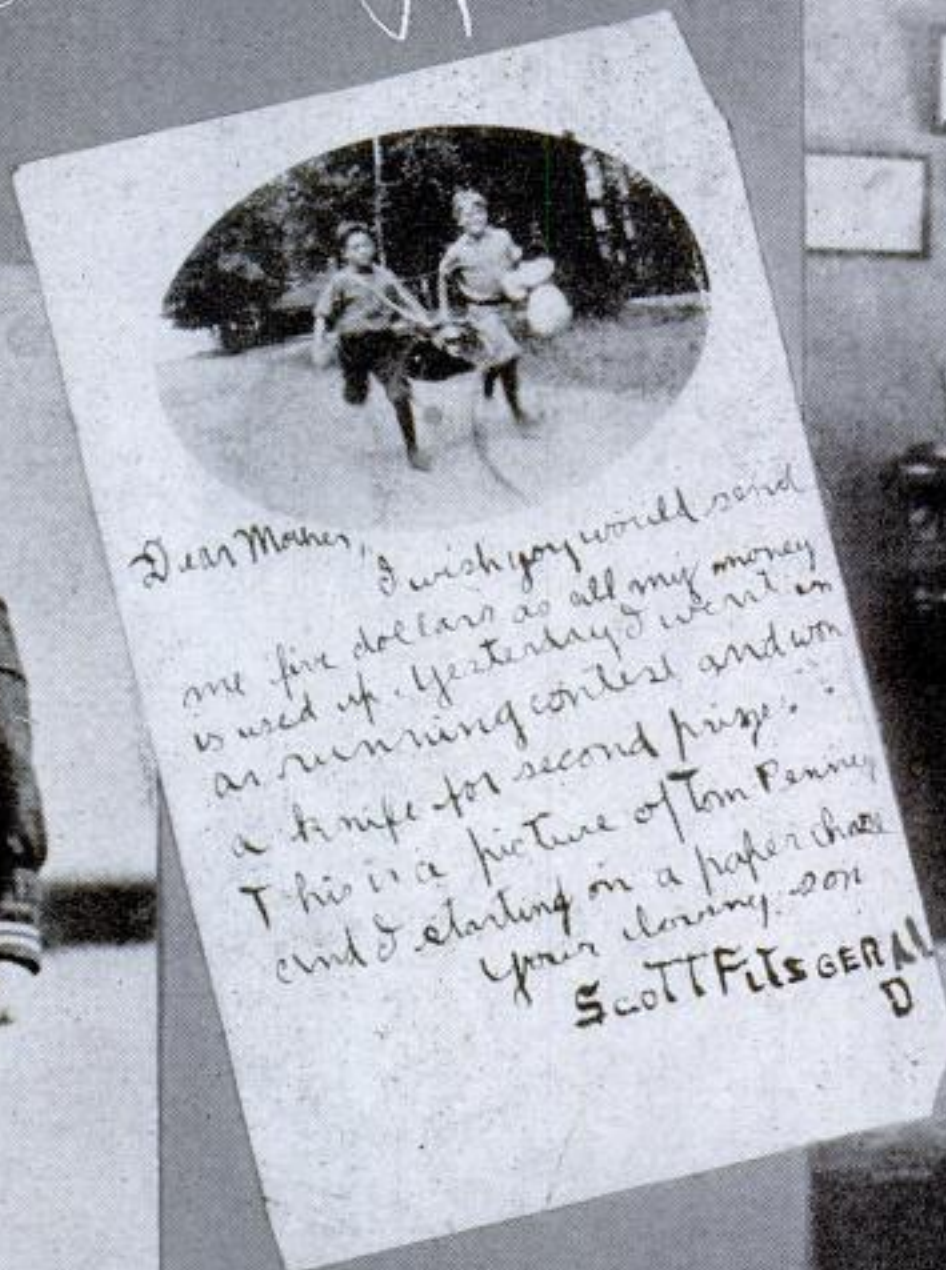 Dear Mother,
I wish you would send
me five dollars as all my money
is used up. Yesterday I went in
a running contest and won
a knife for second prize.
This is a picture of Tom Penney
and I starting on a paper chase
Your loving son
SCOTT FITSGERAL
D